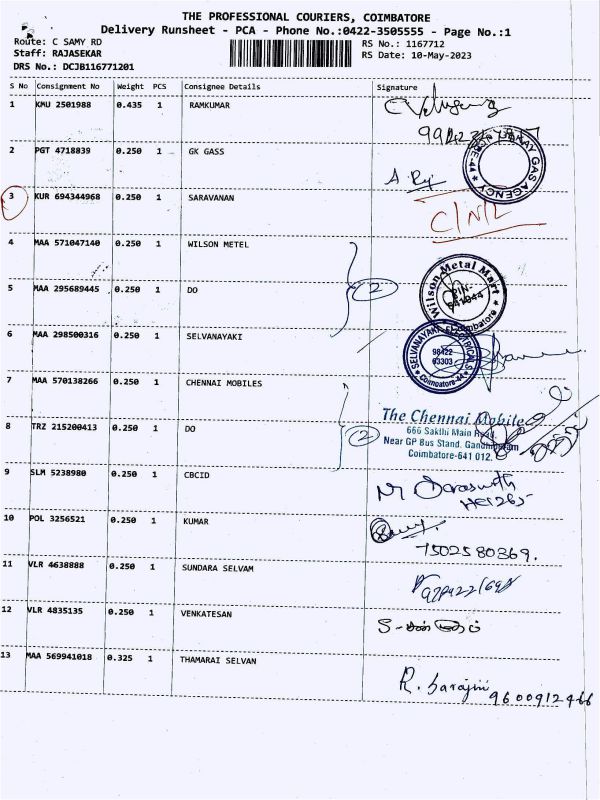 THE PROFESSIONAL COURIERS, COIMBATORE
Delivery Runsheet - PCA - Phone No.:0422-3505555 - Page No.:1
Route: C SAMY RD
RS No.: 1167712
Staff: RAJASEKAR
RS Date: 10-May-2023
DRS No.: DCJB116771201
S No Consignment No Weight PCS Consignee Details Signature
1 KMU 2501988 0.435 1 RAMKUMAR
2 PGT 4718839 0.250 1 GK GASS
GAS AGENCY
3 KUR 694344968 0.250 1 SARAVANAN
4 MAA 571047140 0.250 1 WILSON METEL
5 MAA 295689445 0.250 1 DO 2 Wilson Metal Mart PIN- 641044 Coimbatore
6 MAA 298500316 0.250 1 SELVANAYAKI SELVANAYAKI ELECTRICALS 98422 03303 Coimbatore-44
7 MAA 570138266 0.250 1 CHENNAI MOBILES
The Chennai Mobile
8 TRZ 215200413 0.250 1 DO 2 666 Sakthi Main Road,
Near GP Bus Stand, Gandhipuram
Coimbatore-641 012.
9 SLM 5238980 0.250 1 CBCID
10 POL 3256521 0.250 1 KUMAR
7502580369.
11 VLR 4638888 0.250 1 SUNDARA SELVAM
12 VLR 4835135 0.250 1 VENKATESAN
13 MAA 569941018 0.325 1 THAMARAI SELVAN
R. Sarojini 9600912466